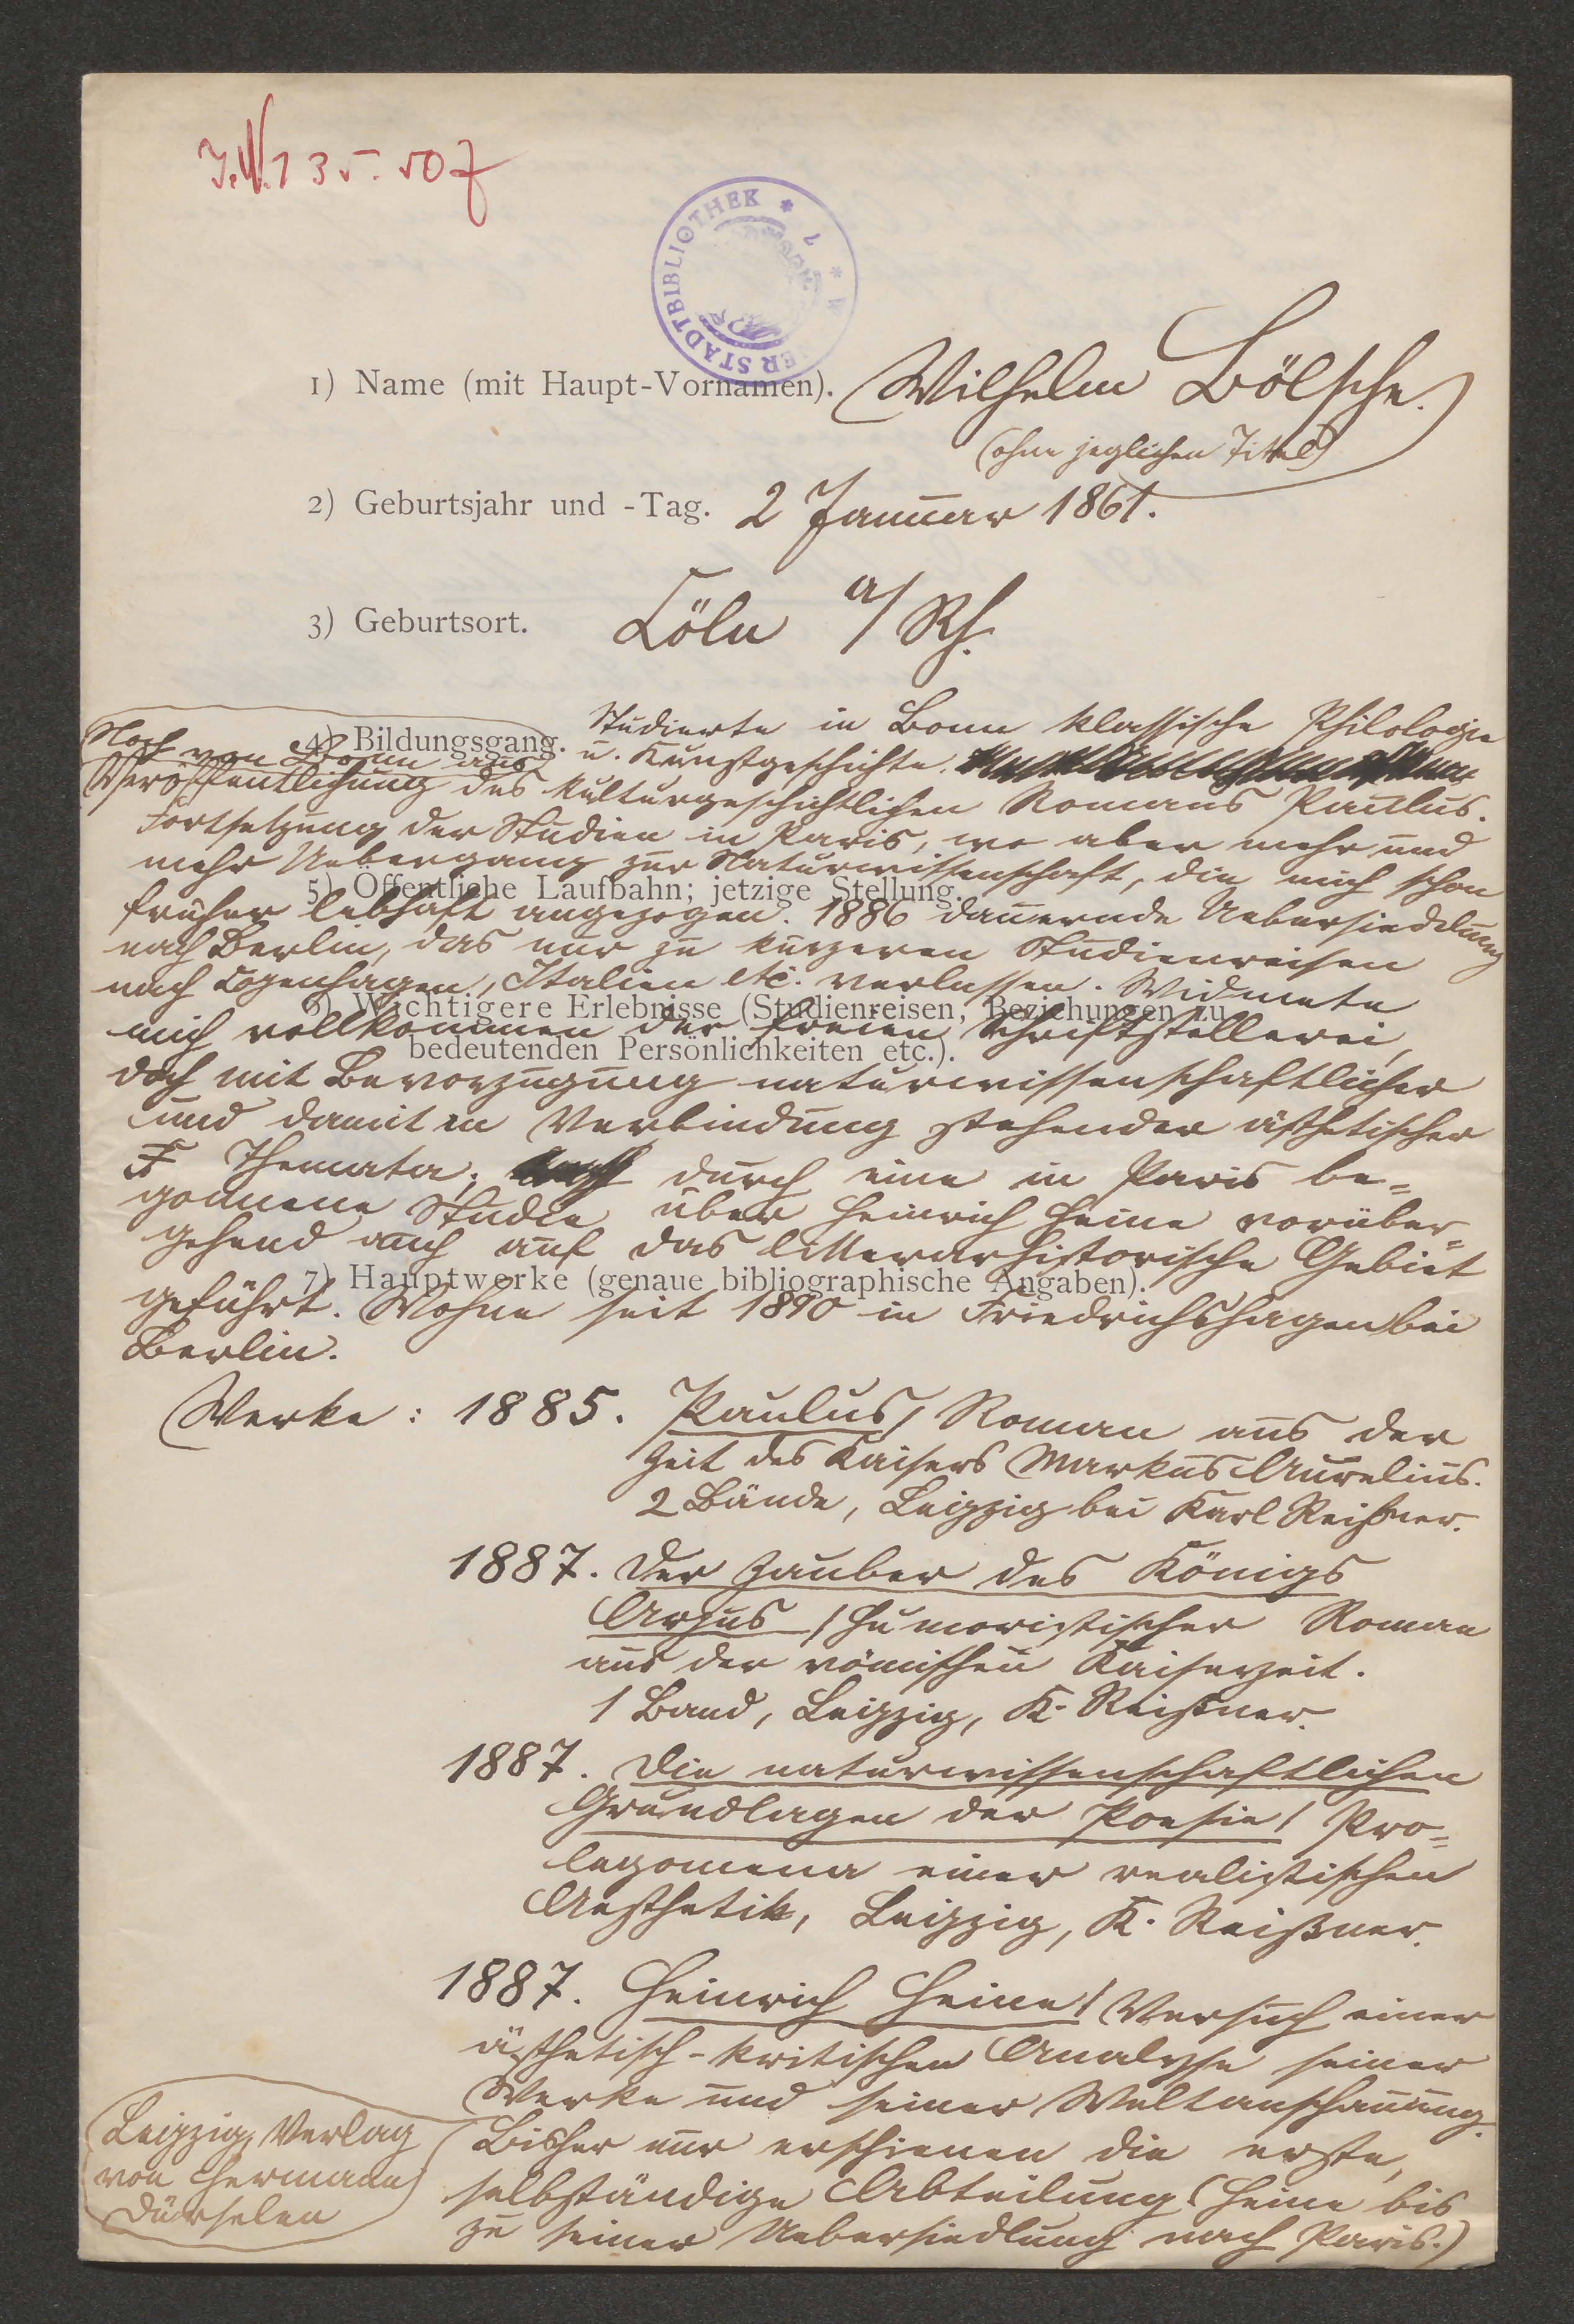 J.N. 135.507
WIENER STADTBIBLIOTHEK
1) Name (mit Haupt-Vornamen). Wilhelm Bölsche.
(ohne jeglichen Titel)
2) Geburtsjahr und -Tag. 2 Januar 1861.
3) Geburtsort. Cöln a/Rh.
4) Bildungsgang. Studierte in Bonn klassische Philologie
u. Kunstgeschichte.
Noch von Bonn aus
Veröffentlichung des kulturgeschichtlichen Romans Paulus.
Fortsetzung der Studien in Paris, wo aber mehr und
mehr Uebergang zur Naturwissenschaft, die mich schon
5) Öffentliche Laufbahn; jetzige Stellung.
früher lebhaft angezogen. 1886 dauernde Uebersiedelung
nach Berlin, das nur zu kürzeren Studienreisen
nach Copenhagen, Italien etc. verlassen. Widmete
6) Wichtigere Erlebnisse (Studienreisen, Beziehungen zu
mich vollkommen der freien Schriftstellerei,
bedeutenden Persönlichkeiten etc.).
doch mit Bevorzugung naturwissenschaftlicher
und damit in Verbindung stehender ästhetischer
F Themata; durch eine in Paris be=
gonnene Studie über Heinrich Heine vorüber=
gehend auch auf das litterarhistorische Gebiet
7) Hauptwerke (genaue bibliographische Angaben).
geführt. Wohne seit 1890 in Friedrichshagen bei
Berlin.
Werke: 1885. Paulus / Roman aus der
Zeit des Kaisers Markus Aurelius.
2 Bände, Leipzig bei Karl Reißner.
1887. Der Zauber des Königs
Arpus / humoristischer Roman
aus der römischen Kaiserzeit.
1 Band, Leipzig, K. Reißner.
1887. Die naturwissenschaftlichen
Grundlagen der Poesie / Pro=
legomena einer realistischen
Aesthetik, Leipzig, K. Reißner.
1887. Heinrich Heine / Versuch einer
ästhetisch-kritischen Analyse seiner
Werke und seiner Weltanschauung.
Bisher nur erschienen die erste,
selbständige Abteilung (Heine bis
zu seiner Uebersiedlung nach Paris.)
Leipzig, Verlag
von Hermann
Dürselen